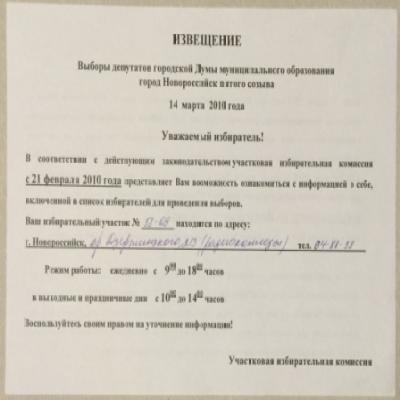 ИЗВЕЩЕНИЕ
Выборы депутатов городской Думы муниципального образования
город Новороссийск пятого созыва
14 марта 2010 года
Уважаемый избиратель!
В соответствии с действующим законодательством участковая избирательная комиссия
с 21 февраля 2010 года представляет Вам возможность ознакомиться с информацией о себе,
включенной в список избирателей для проведения выборов.
Ваш избирательный участок № находится по адресу:
г. Новороссийск, пр Дзержинского (радиоколледж) тел.
Режим работы: ежедневно с 9 00 до 18 00 часов
в выходные и праздничные дни с 10 00 до 14 00 часов
Воспользуйтесь своим правом на уточнение информации!
Участковая избирательная комиссия